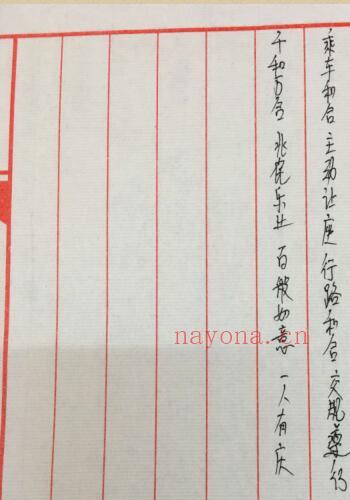 乘车和合 主动让座 行路和合 交规尊行
千和万合 兆民乐业 百般如意 一人有庆
nayona.cn